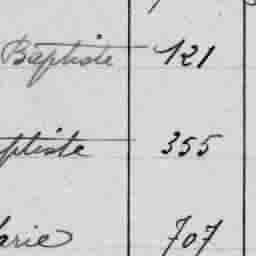 Baptiste 121
ptiste 355
arie 707